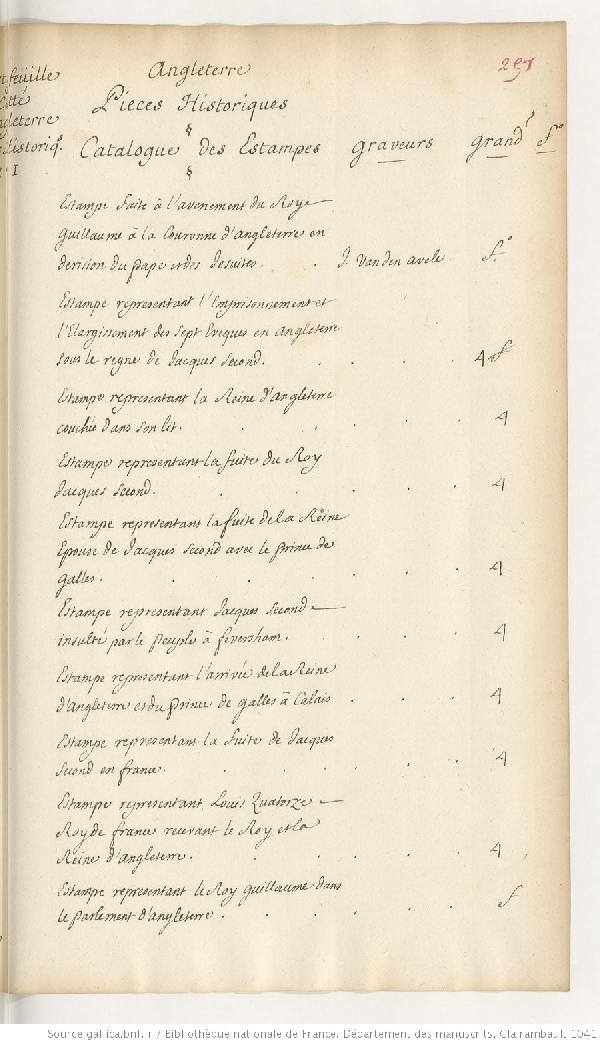 Angleterre
251
feüille
cotté
gleterre
Historiq.
I
Pieces Historiques
§
Catalogue des Estampes graveurs grand.r f.o
§
Estampe faite à l'avenement du Roy
Guillaume à la Couronne d'angleterre en
derision du pape et des Jesuites. J. Van den avele f.o
Estampe representant l'Emprisonnement et
l'Elargissement des Sept Eveques en angleterre
sous le regne de Jacques Second. 4 f
Estampe representant la Reine d'angleterre
couchée dans son lit. 4
Estampe representant la fuite du Roy
Jacques Second. 4
Estampe representant la fuite de la Reine
Epouse de Jacques Second avec le prince de
galles. 4
Estampe representant Jacques Second
insulté par le peuple à feversham. 4
Estampe representant l'arrivée de la Reine
d'angleterre et du prince de galles à Calais 4
Estampe representant la fuite de Jacques
Second en france. 4
Estampe representant Louis Quatorze
Roy de france recevant le Roy et la
Reine d'angleterre. 4
Estampe representant le Roy guillaume dans
le parlement d'angleterre. f
Source gallica.bnf.fr / Bibliothèque nationale de France. Département des manuscrits. Clairambault 1041